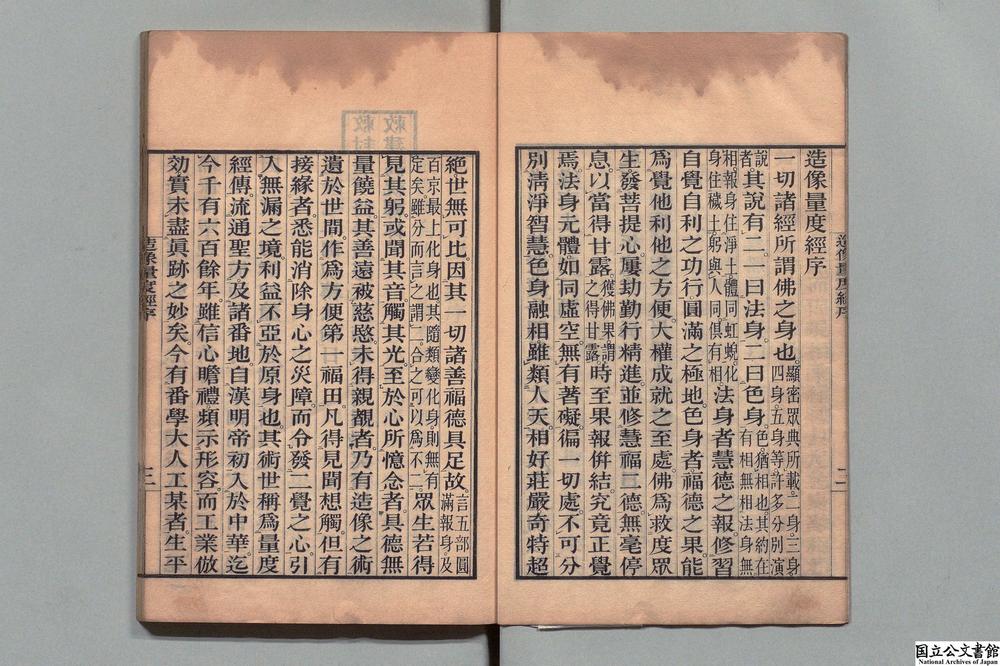 造像量度經序
一切諸經所謂佛之身也。顯密眾典所載。一身。三身。四身。五身等。許多分別演
說者其說有二。一曰法身。二曰色身。色猶相也。其約在有相無相。法身無
相。報身住淨土。體同虹蜺。化身住穢土。躬與人同。俱有相法身者慧德之報。修習
自覺自利之功行圓滿之極地。色身者福德之果。能
爲覺他利他之方便。大權成就之至處。佛爲救度眾
生。發菩提心。屢劫勤行精進。並修慧福二德。無毫停
息。以當得甘露。獲佛果謂之得甘露時至果報併結。究竟正覺
焉。法身元體。如同虛空。無有著礙。徧一切處。不可分
別。淸淨智慧。色身融相。雖類人天。相好莊嚴。奇特超
造像量度經序
二
絶世無可比。因其一切諸善福德具足故。言五部圓滿報身及
百京最上化身也。其隨類變化身。則無有定矣。雖分而言之謂二。合之可以爲不二。眾生若得
見其躬。或聞其音。觸其光。至於心所憶念者。具德無
量饒益。其善遠被慈愍。未得親覩者。乃有造像之術
遺於世間。作爲方便第一福田。凡得見聞想觸。但有
接緣者。悉能消除身心之災障。而令發二覺之心。引
入無漏之境。利益不亞於原身也。其術世稱爲量度
經傳。流通聖方及諸番地。自漢明帝初入於中華。迄
今千有六百餘年。雖信心瞻禮。頻示形容。而工業倣
効。實未盡眞跡之妙矣。今有番學大人工某者。生平
造像量度經序
三
国立公文書館
National Archives of Japan